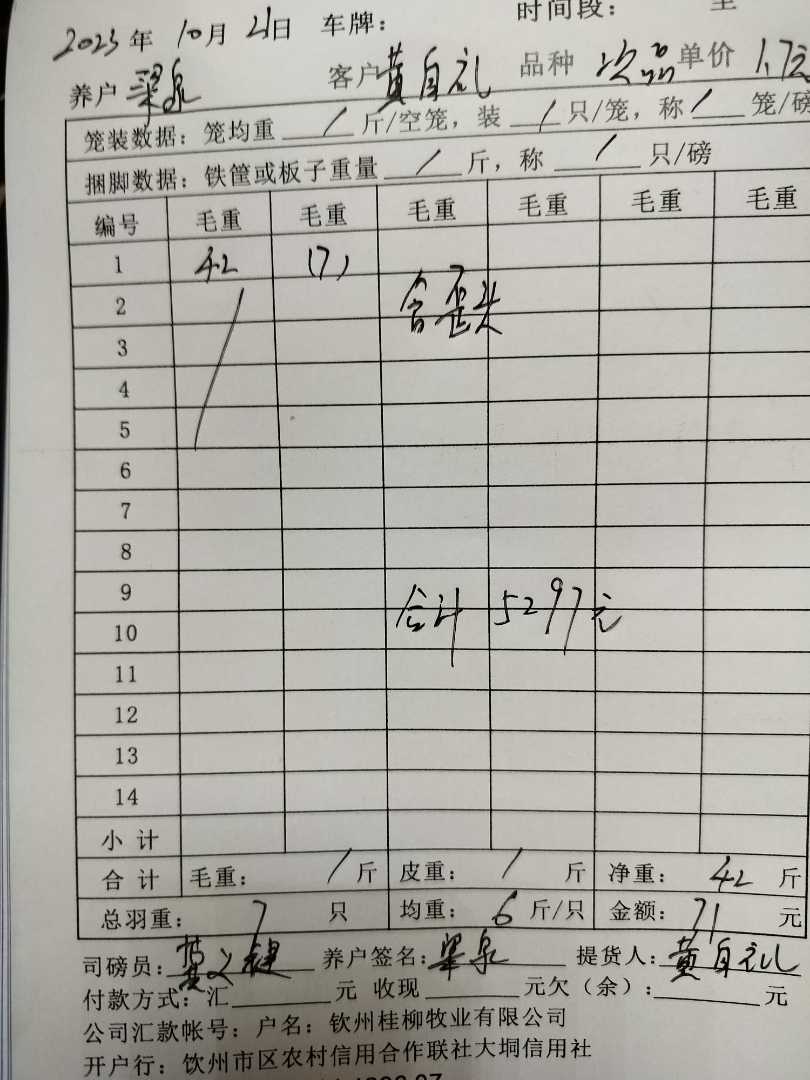 时间段： 至
2023年 10月 21日 车牌：
养户 梁泉 客户 黄自礼 品种 次品 单价 1.7元
笼装数据：笼均重 / 斤/空笼，装 / 只/笼，称 / 笼/磅
捆脚数据：铁筐或板子重量 / 斤，称 / 只/磅
编号 毛重 毛重 毛重 毛重 毛重 毛重
1 42 (7)
2 含歪头
3
4
5
6
7
8
9
10 合计 5297元
11
12
13
14
小 计
合 计 毛重： / 斤 皮重： / 斤 净重： 42 斤
总羽重： 7 只 均重： 6 斤/只 金额： 71 元
司磅员： 养户签名：梁泉 提货人：黄自礼
付款方式：汇 元 收现 元欠（余）： 元
公司汇款帐号：户名：钦州桂柳牧业有限公司
开户行：饮州市区农村信用合作联社大垌信用社